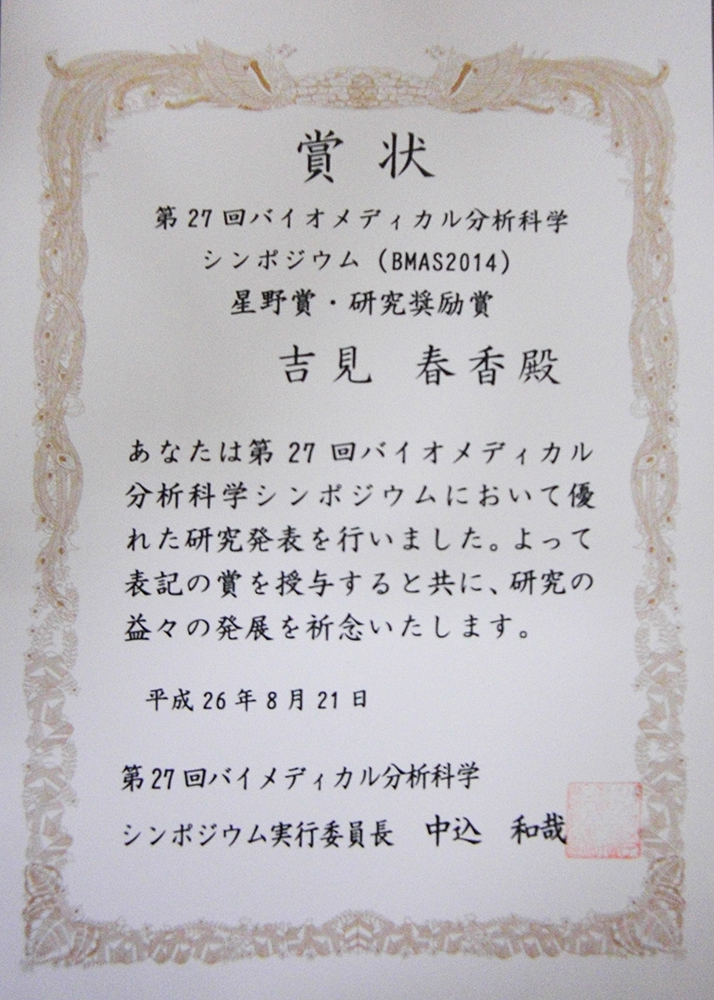 賞状
第27回バイオメディカル分析科学
シンポジウム（BMAS2014）
星野賞・研究奨励賞
吉見 春香殿
あなたは第27回バイオメディカル
分析科学シンポジウムにおいて優
れた研究発表を行いました。よって
表記の賞を授与すると共に、研究の
益々の発展を祈念いたします。
平成26年8月21日
第27回バイメディカル分析科学
シンポジウム実行委員長 中込 和哉